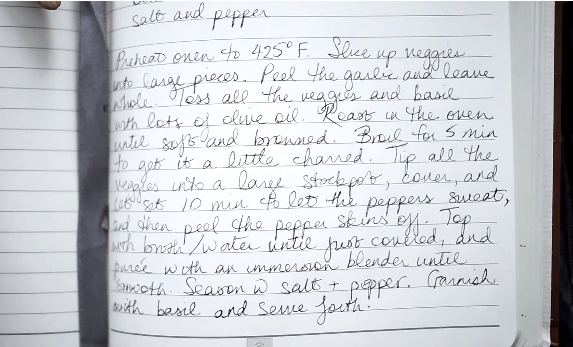 salt and pepper
Preheat oven to 425° F. Slice up veggies
into large pieces. Peel the garlic and leave
whole. Toss all the veggies and basil
with lots of olive oil. Roast in the oven
until soft and browned. Broil for 5 min
to get it a little charred. Tip all the
veggies into a large stockpot, cover, and
let sit 10 min to let the peppers sweat,
and then peel the pepper skins off. Top
with broth/water until just covered, and
purée with an immersion blender until
smooth. Season w salt + pepper. Garnish
with basil and serve forth.